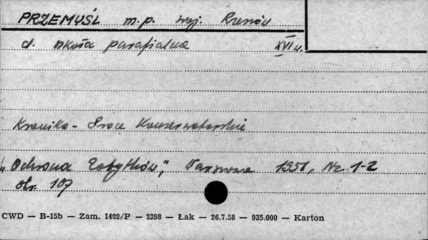 PRZEMYŚL m.p. woj. Rzeszów
d. szkoła parafialna XVI w.
Kronika - Prace Konserwatorskie
"Ochrona Zabytków", Warszawa 1958, Nr. 1-2
str. 107
CWD — B-15b — Zam. 1492/P — 2398 — Łak — 26.7.58 — 935.000 — Karton